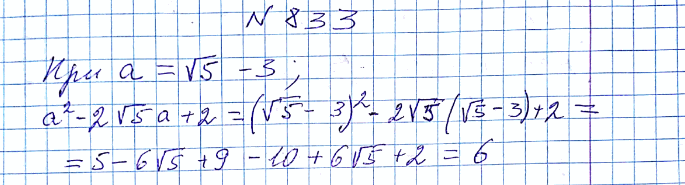 N 833
При a = √5 - 3;
a² - 2√5 a + 2 = (√5 - 3)² - 2√5 (√5 - 3) + 2 =
= 5 - 6√5 + 9 - 10 + 6√5 + 2 = 6